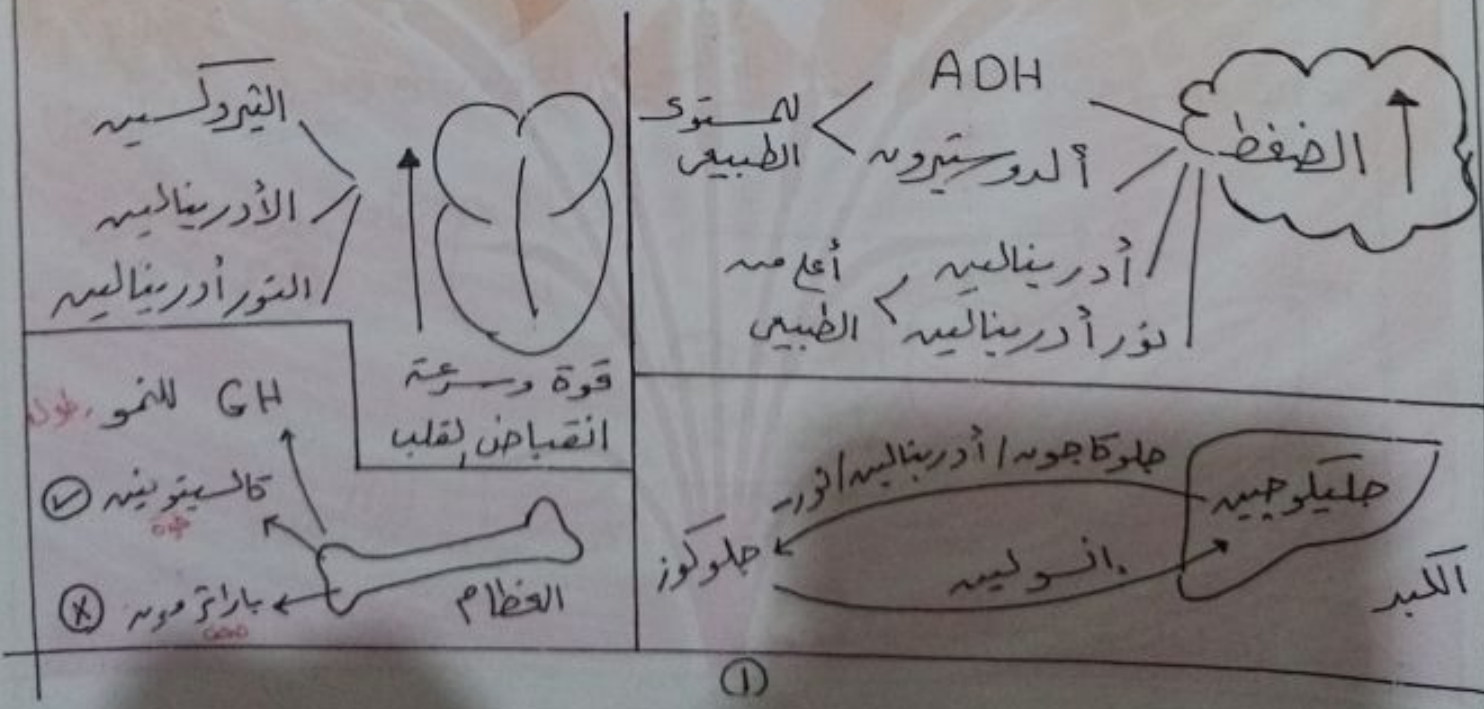 الضغط
ADH
ألدوستيرون
للمستوى
الطبيعى
أدرينالين
نورأدرينالين
أعلى من
الطبيعى
الثيروكسين
الأدرينالين
النورأدرينالين
قوة وسرعة
انقباض القلب
الكبد
جليكوجين
جلوكاجون / أدرينالين / نور
انسولين
جلوكوز
GH للنمو
كالسيتونين
باراثرمون
العظام
①